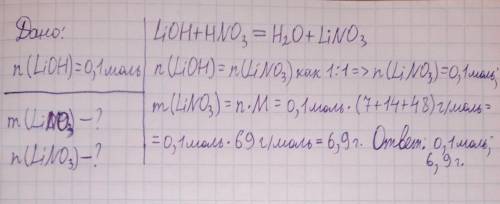 Дано:
n(LiOH)=0,1моль
m(LiNO₃)-?
n(LiNO₃)-?
LiOH+HNO₃=H₂O+LiNO₃
n(LiOH)=n(LiNO₃) как 1:1=>n(LiNO₃)=0,1моль;
m(LiNO₃)=n·M=0,1моль·(7+14+48)г/моль=
=0,1моль·69г/моль=6,9г. Ответ: 0,1моль;
6,9г.